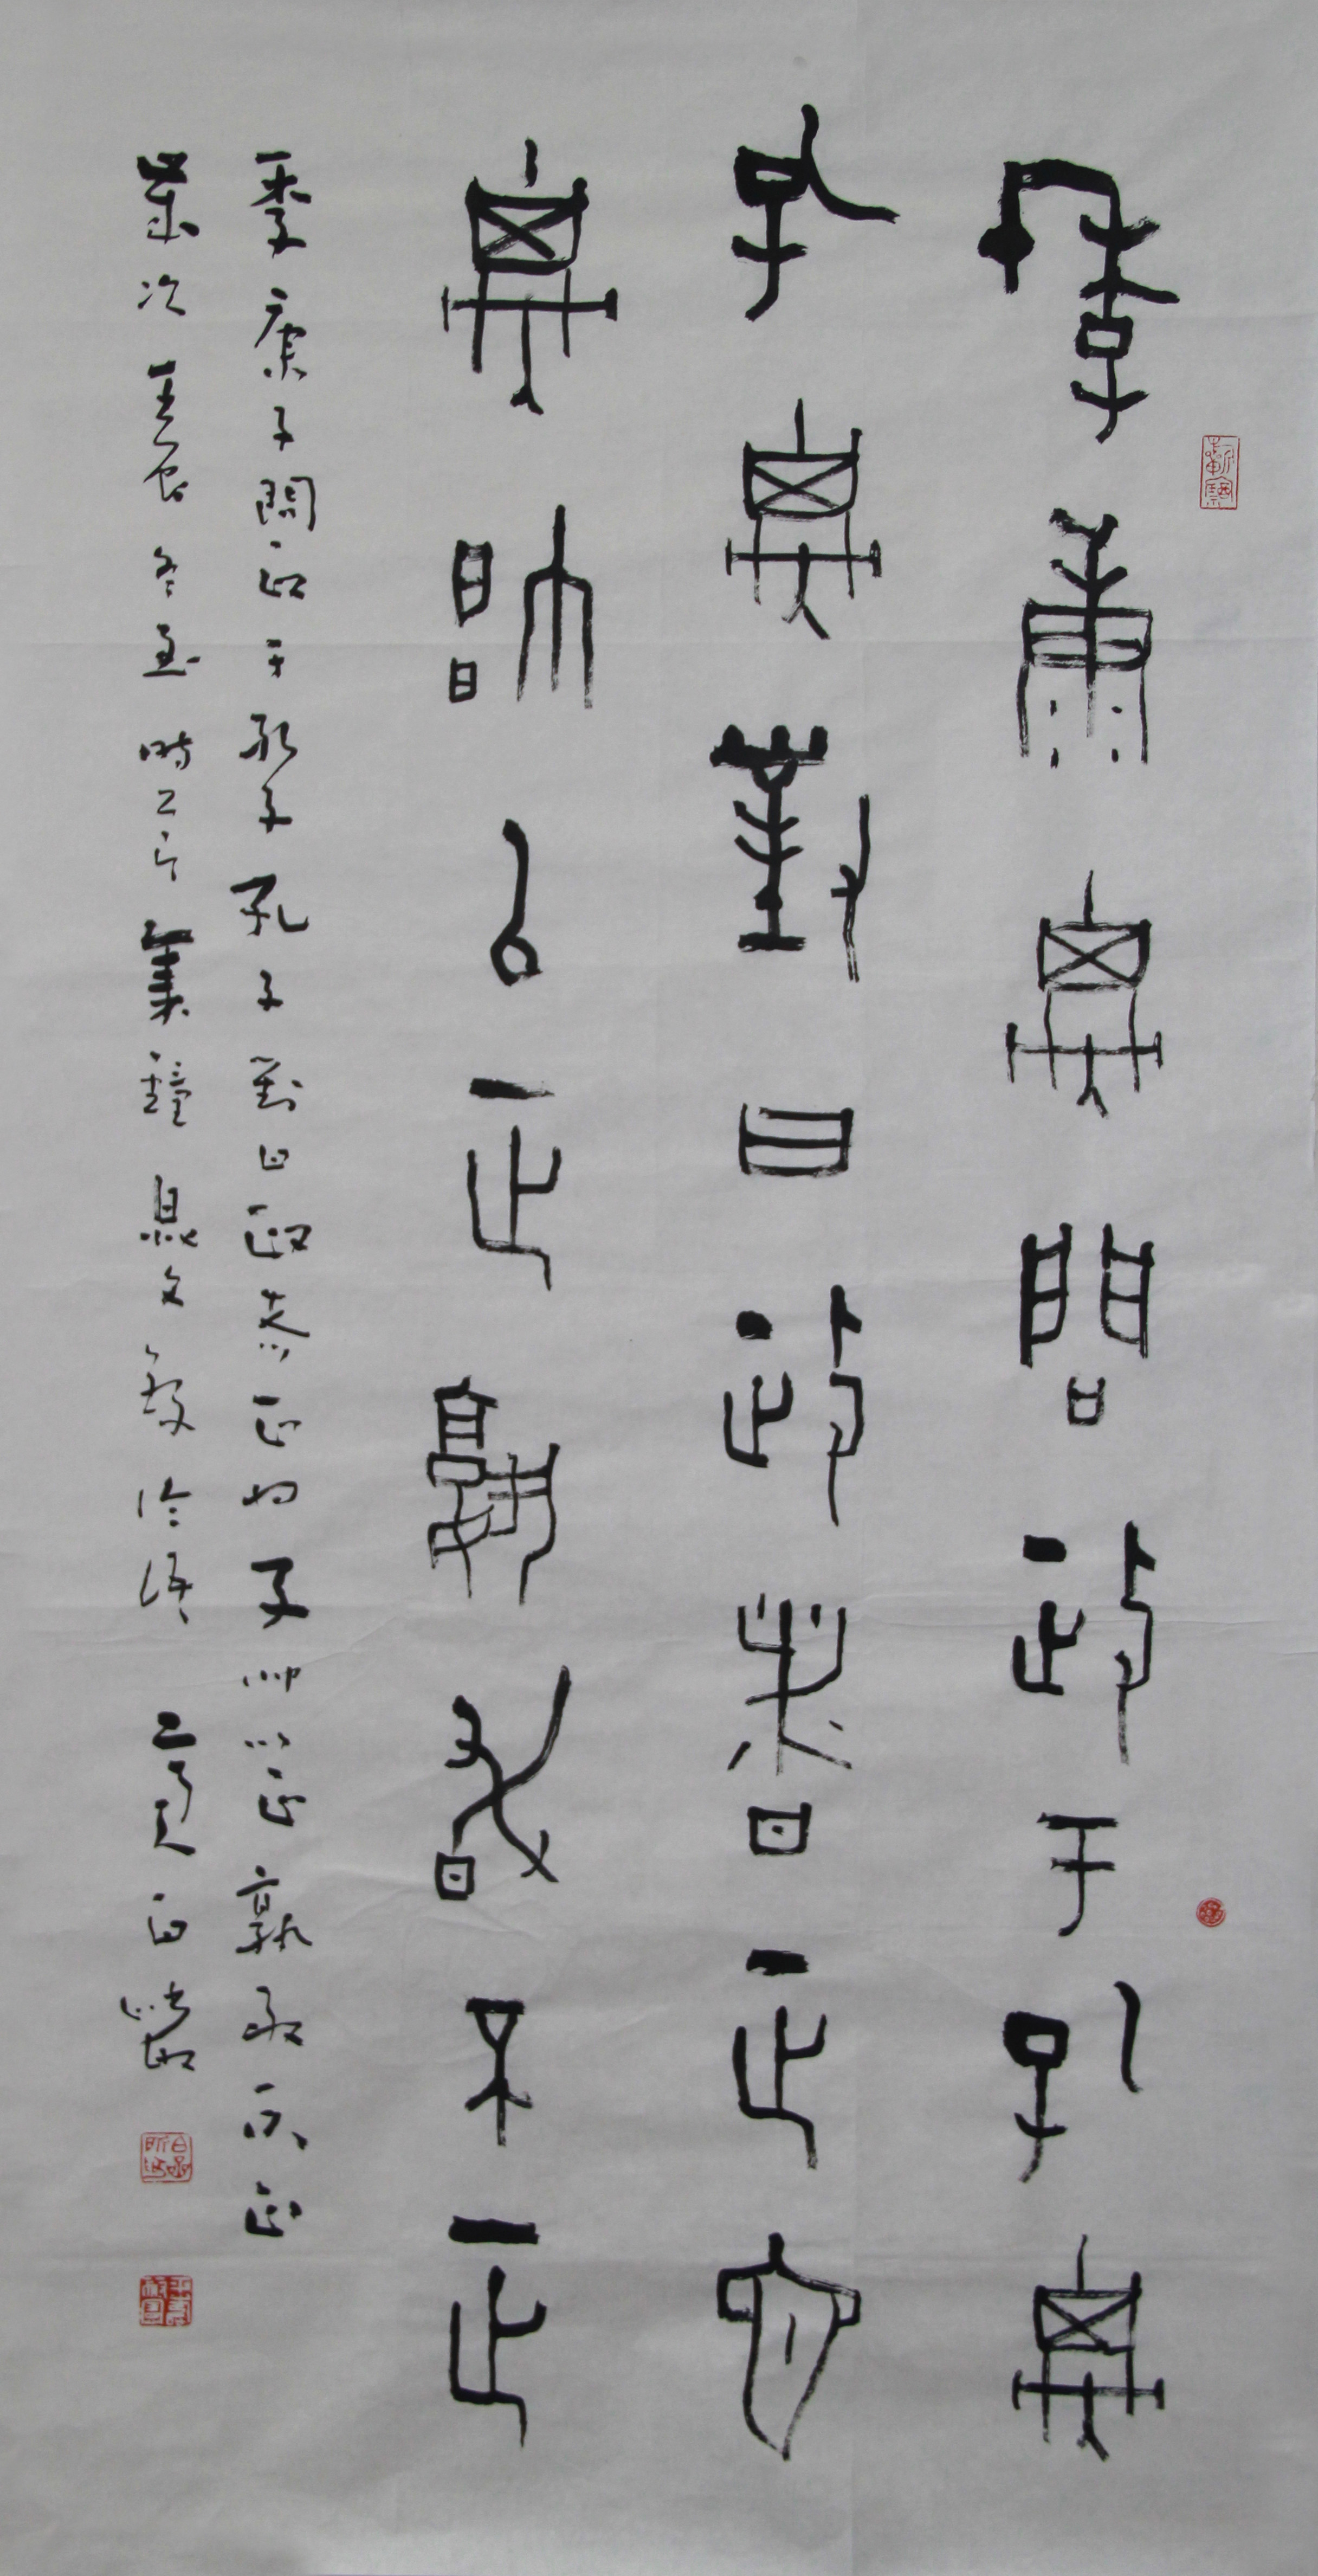 季康子問政于孔子
孔子對曰政者正也
子帥以正孰敢不正
季康子問政于孔子孔子對曰政者正也子帥以正孰敢不正
歲次壬辰冬至時節集鐘鼎文錄論語